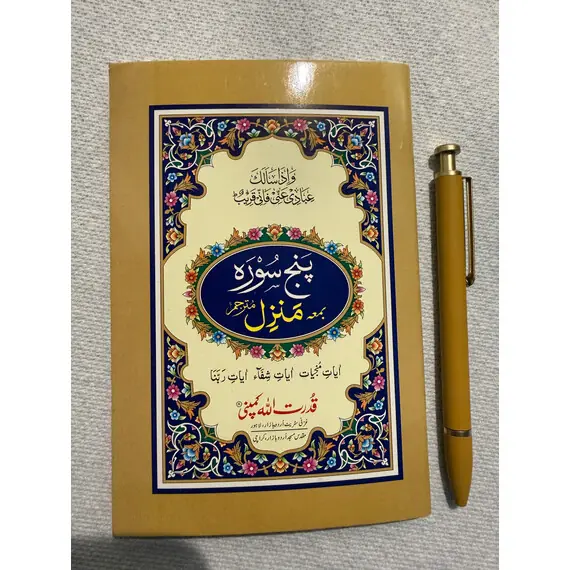 وَاِذَا سَاَلَكَ
عِبَادِیْ عَنِّیْ فَاِنِّیْ قَرِیْبٌ ط
پنج سُورہ
بمعہ مَنزِل مُترجم
آیاتِ مُنجیات آیاتِ شِفَآء آیاتِ رَبَّنَا
قدرت اللہ کمپنی ®
غزنی سٹریٹ اُردو بازار، لاہور
مقدس مسجد اُردو بازار، کراچی